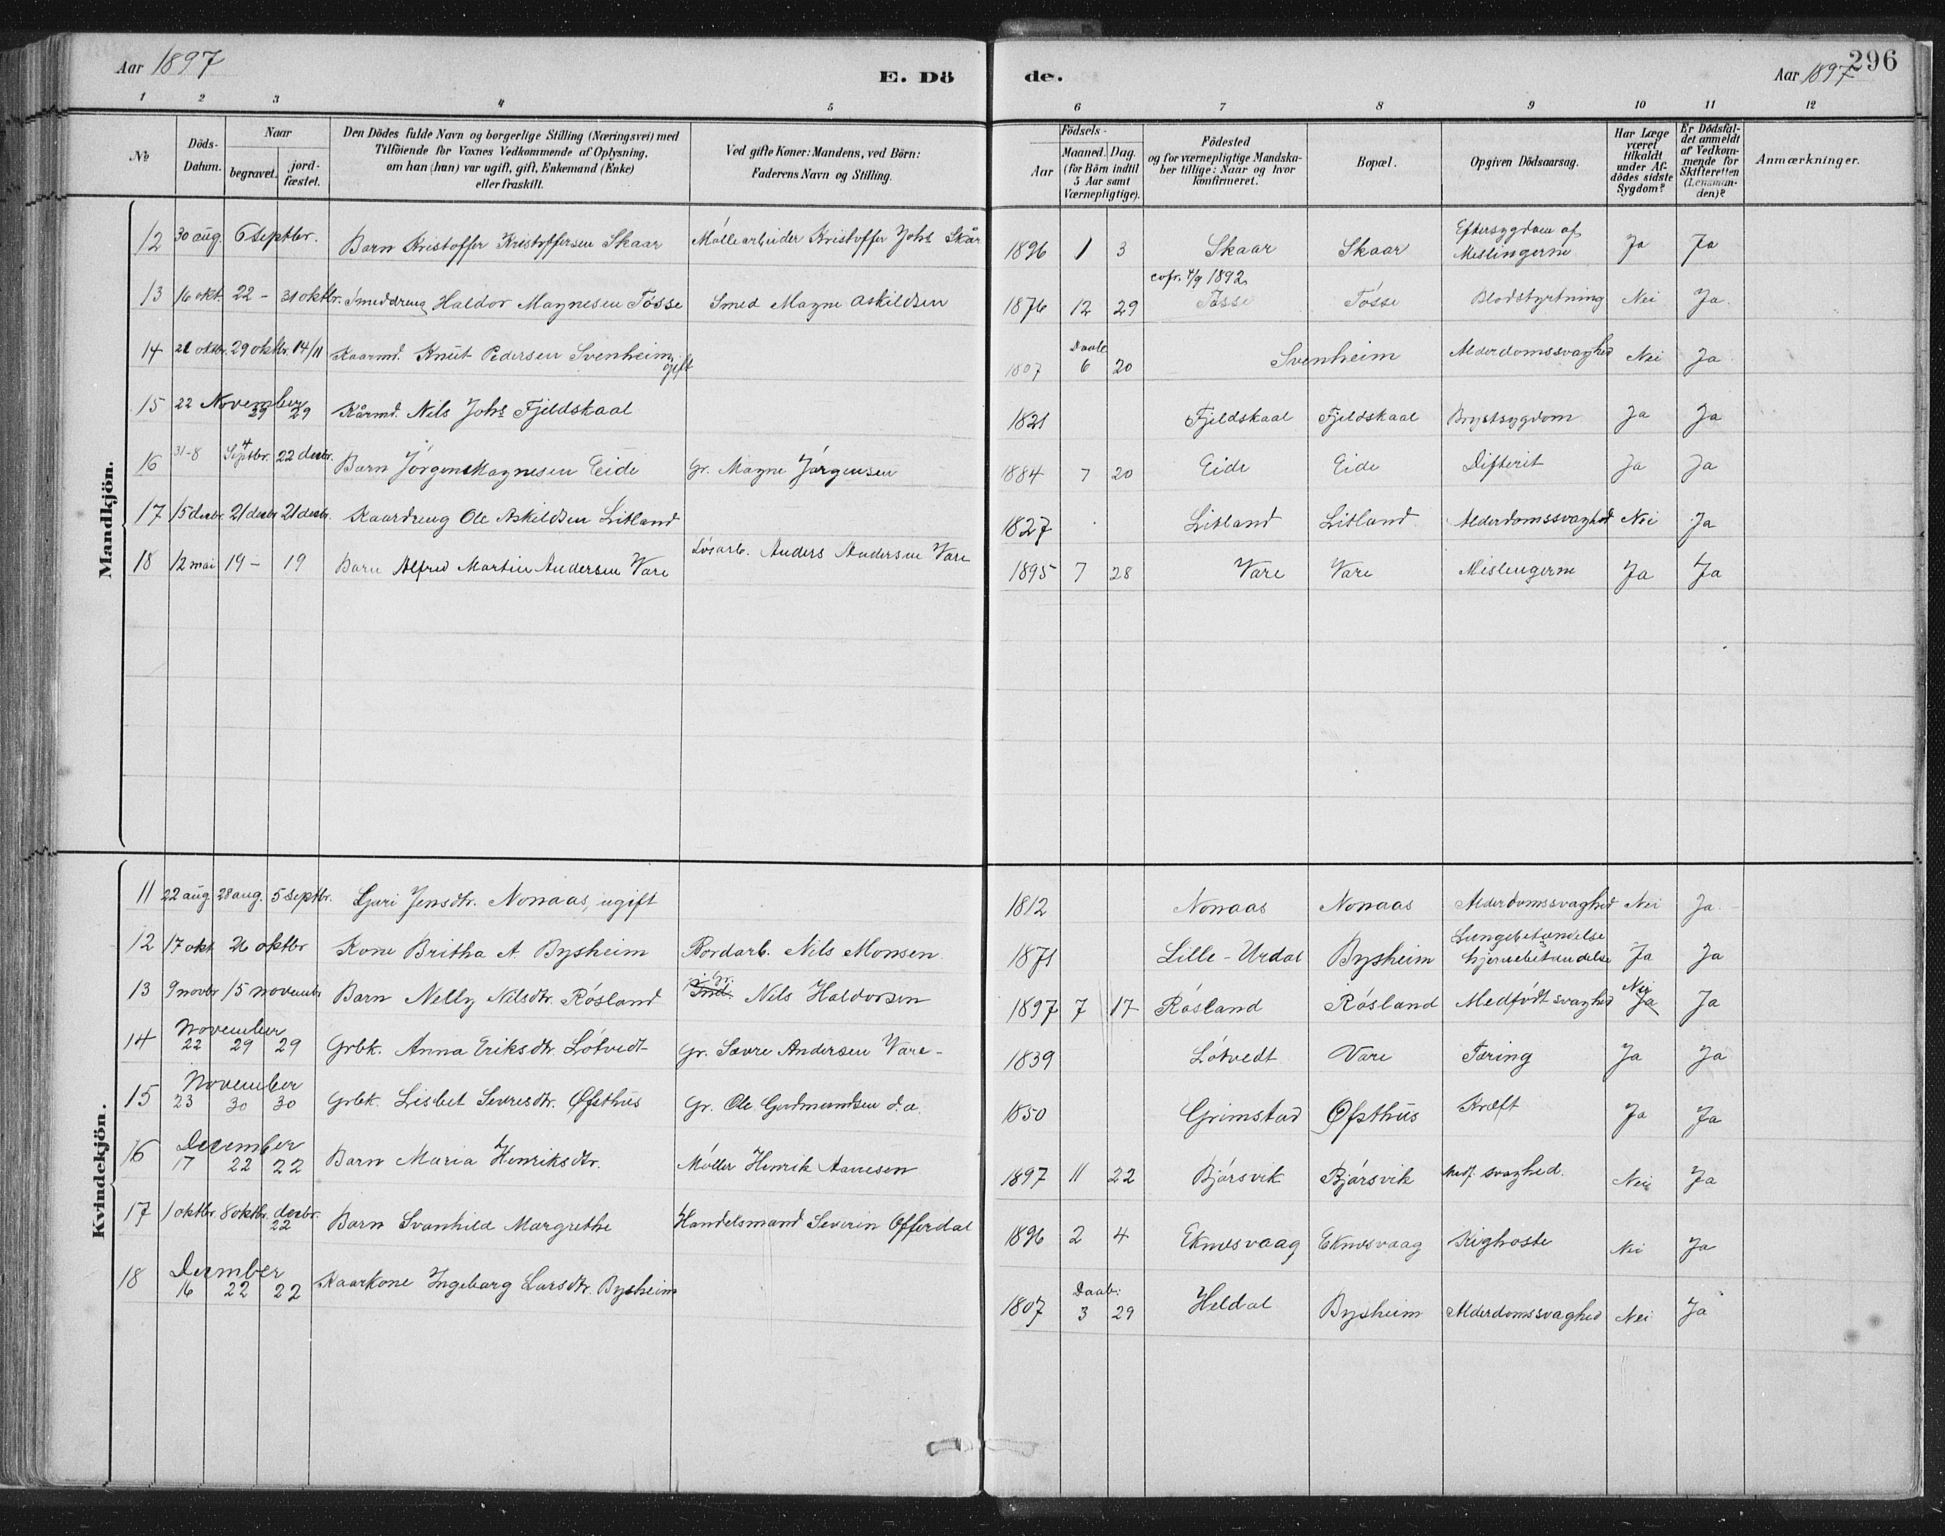 Aar 1897 E. Dö de. Aar 1897 296
1 2 3 4 5 6 7 8 9 10 11 12
No
Döds-Datum.
Naar
begravet.
jord-fæstet.
Den Dödes fulde Navn og borgerlige Stilling (Næringsvei) med
Tilföiende for Voxnes Vedkommende af Oplysning,
om han (hun) var ugift, gift, Enkemand (Enke)
eller fraskilt.
Ved gifte Koner: Mandens, ved Börn:
Faderens Navn og Stilling.
Födsels-
Aar
Maaned. Dag.
(for Börn indtil
5 Aar samt
Værnepligtige).
Födested
og for værnepligtige Mandska-
ber tillige: Naar og hvor
konfirmeret.
Bopæl.
Opgiven Dödsaarsag.
Har Læge
været
tilkaldt
under Af-
dödes sidste
Sygdom?
Er Dödsfal-
det anmeldt
af Vedkom-
mende for
Skifteretten
(Lensman-
den)?
Anmærkninger.
Mandkjön.
12 30 aug. 6 Septbr. Barn Kristoffer Kristoffersen Skaar Möllearbeider Kristoffer Johs Skår 1896 1 3 Skaar Skaar Eftersygdom af Meslingerne Ja Ja
13 16 okt. 22 - 31 oktbr. Smeddreng Haldor Magnesen Tösse Smed Magne Askildsen 1876 12 29 cofr. 4/9 1892 Tösse Tösse Blodstyrtning Nei Ja
14 21 oktbr. 29 oktbr. 14/11 Kaarmd. Knut Pedersen Svenheim, gift 1807 Daab 6 20 Svenheim Alderdomssvaghed Nei Ja
15 22 November 29 29 Kårmd. Nils Johs Fjeldskaal 1821 Fjeldskaal Fjeldskaal Brystsygdom Ja Ja
16 31-8 4 Septbr. 22 decbr. Barn Jörgen Magnesen Eide Gr. Magne Jörgensen 1884 7 20 Eide Eide Difterit Ja Ja
17 15 decbr. 21 decbr. 21 decbr. Kaardreng Ole Askildsen Litland 1827 Litland Litland Alderdomssvaghed Nei Ja
18 12 mai 19 - 19 Barn Alfred Martin Andersen Vare Lösarb. Anders Andersen Vare 1895 7 28 Vare Vare Meslingerne Ja Ja
Kvindekjön.
11 22 aug 28 aug. 5 Septbr. Guri Jensdtr. Nonaas, ugift 1812 Nonaas Nonaas Alderdomssvaghed Nei Ja
12 17 okt 26 oktbr Kone Britha A. Bysheim Bordarb. Nils Monsen 1871 Lille-Urdal Bysheim Lungebetændelse Hjernebetændelse Ja Ja
13 9 novbr 15 novembr Barn Nelly Nilsdtr. Rösland Gr. Nils Haldorsen 1897 7 17 Rösland Rösland Medfödt svaghed Nei Ja Ja
14 November 22 29 29 Grbk. Anna Eriksdtr. Lötvedt Gr. Sævre Andersen Vare - 1839 Lötvedt Vare Tæring Ja Ja
15 November 23 30 30 Grbk. Lisbet Seversdtr. Øfsthus Gr. Ole Gudmundsen d.a. 1850 Grimstad Øfsthus Kræft Ja Ja
16 December 17 22 22 Barn Maria Henriksdtr. Möller Henrik Aanesen 1897 11 22 Bjørsvik Bjørsvik Medf. svaghed. Nei Ja
17 1 oktbr. 8 oktbr. decbr. 22 Barn Svanhild Margrethe Handelsmand Severin Offerdal 1896 2 4 Eknesvaag Eknesvaag Kighoste Nei Ja
18 December 16 22 22 Kaarkone Ingeborg Larsdtr. Bysheim 1807 Daab: 3 29 Heldal Bysheim Alderdomssvaghed Nei Ja